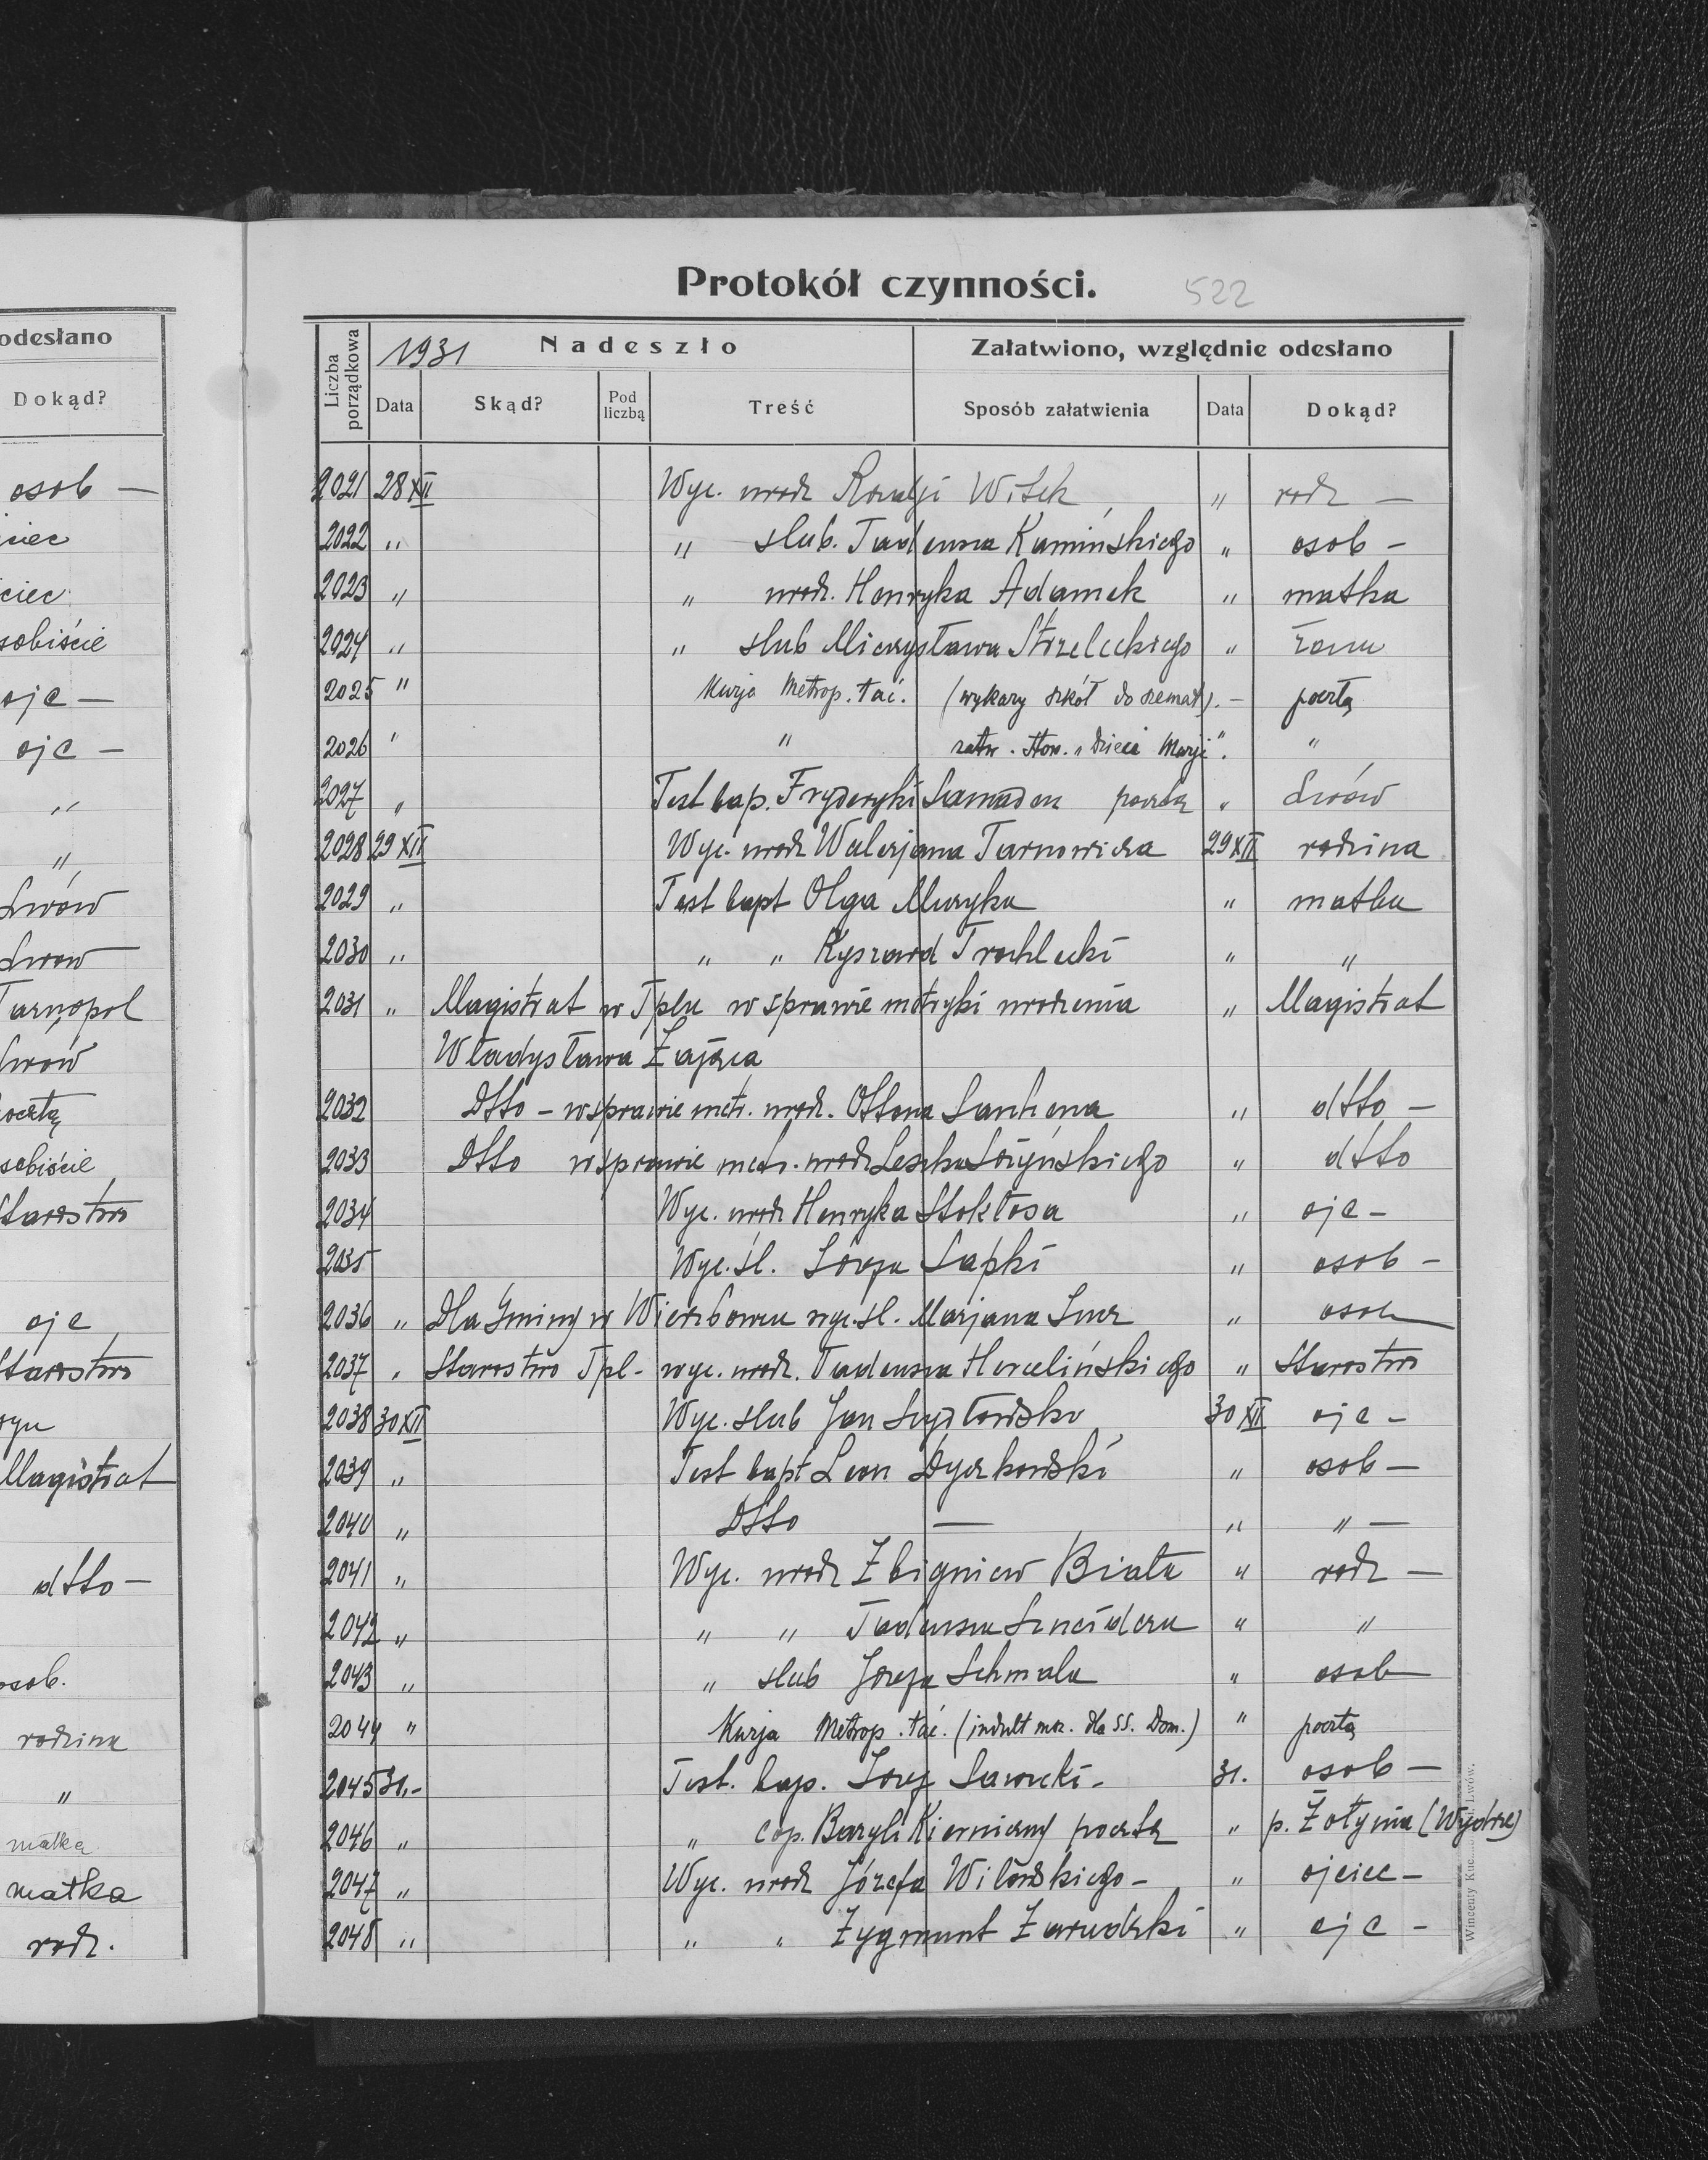 odesłano
Dokąd?
osob —
ciec
ciec
sobiście
ojc —
ojc —
"
"
Lwów
Lwow
Tarnopol
Lwów
pocztą
sobiście
Starostwo
ojc
Starostwo
Magistrat
dtto —
osob.
rodzina
"
matka
matka
rodz.
Protokół czynności.
522
Liczba porządkowa
1931
Nadeszło
Załatwiono, względnie odesłano
Data
Skąd?
Pod liczbą
Treść
Sposób załatwienia
Data
Dokąd?
2021 28 XII Wyc. urodz Rozalji Witek " rodz —
2022 " " slub. Tadeusza Kamińskiego " osob —
2023 " " urodz. Henryka Adamek " matka
2024 " " slub Mieczysława Strzeleckiego " żona
2025 " Kurja Metrop. łać. (wykazy szkół do szemat). — pocztą
2026 " " zatw. stow. „Dzieci Marji". "
2027 " Test bap. Fryderyki pocztą " Lwów
2028 29 XII Wyc. urodz Walerjana Tarnowicza 29 XII rodzina
2029 " Test bapt Olga Muzyka " matka
2030 " " " Ryszard Trochlecki " "
2031 " Magistrat w Tplu w sprawie metryki urodzenia " Magistrat
Władysława Zająca
2032 Dtto — w sprawie metr. urodz. Ottona " dtto —
2033 Dtto w sprawie metr. urodz Leszka " dtto
2034 Wyc. urodz Henryka Stokłosa " ojc —
2035 Wyc. śl. Józefa Sapki " osob —
2036 " Dla Gminy w wyc. sl. Marjana " osob
2037 " Starostwo Tpl — wyc. urodz. Tadeusza " Starostwo
2038 30 XII Wyc. slub Jan 30 XII ojc —
2039 " Test bapt Leon Dyczkowski " osob —
2040 " Dtto — " " —
2041 " Wyc. urodz Zbigniew Biała " rodz —
2042 " " " Tadeusza Szneidera " "
2043 " " slub Józefa Schmala " osob
2044 " Kurja Metrop. łać. (indult moz. dla SS. Dom.) " pocztą
2045 31. — Test. bap. Józef Sawicki — 31. osob —
2046 " " cop. Bazyli Kierniczny pocztą " p. Żołynia (Wydrze)
2047 " Wyc. urodz Józefa Witowskiego — " ojciec —
2048 " " " Zygmunt Zarudzki " ojc —
Wincenty Kuc Lwów.